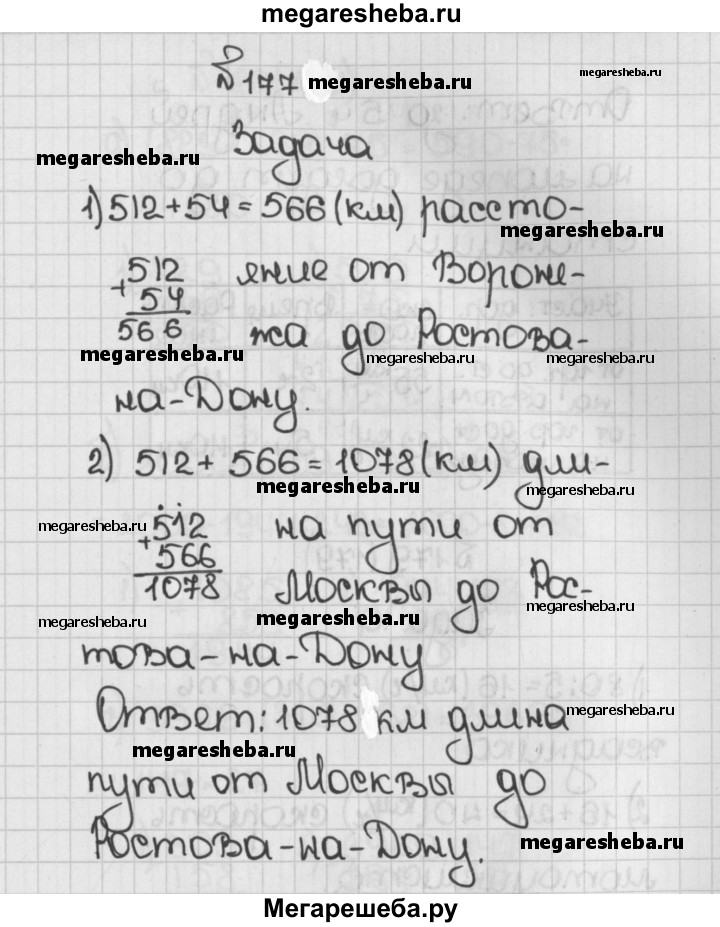 megaresheba.ru
№177 megaresheba.ru megaresheba.ru
Задача
megaresheba.ru
1) 512+54=566 (км) рассто-
megaresheba.ru
+512 яние от Вороне-
54
566 жа до Ростова-
megaresheba.ru megaresheba.ru megaresheba.ru
на-Дону.
2) 512+566=1078 (км) дли-
megaresheba.ru megaresheba.ru
megaresheba.ru +512 на пути от
566
1078 Москвы до Рос-
megaresheba.ru
megaresheba.ru megaresheba.ru
това-на-Дону
Ответ: 1078 км длина
megaresheba.ru
megaresheba.ru
пути от Москвы до
Ростова-на-Дону.
megaresheba.ru
Мегарешеба.ру